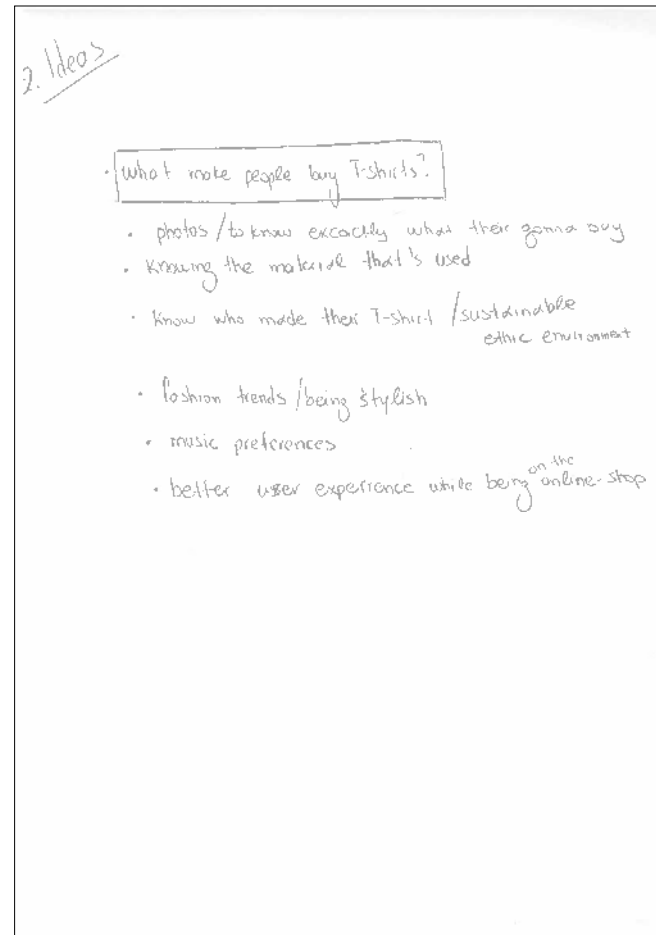 2. Ideas
· What make people buy T-shirts?
· photos / to know excactly what their gonna buy
· Knowing the material that's used
· Know who made their T-shirt / sustainable
ethic environment
· fashion trends / being stylish
· music preferences
· better user experience while being on the online-shop